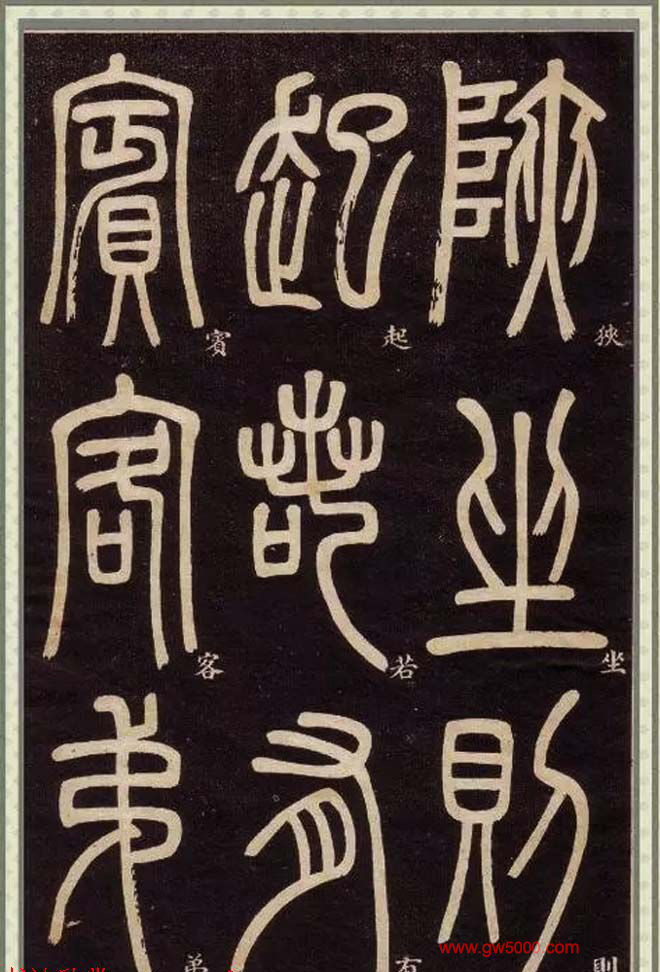 陜坐則
起若有
賓客弟
狹
坐
則
起
若
有
賓
客
弟
www.gw5000.com